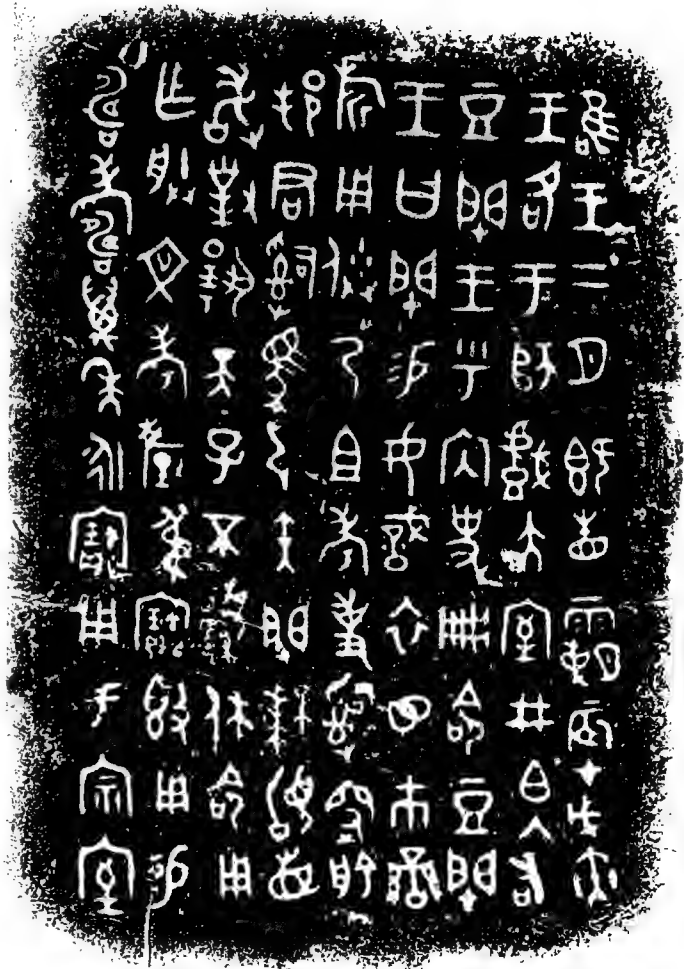 唯王二月既眚霸辰才戊寅
王各于師戲大室井白入右
豆閉王乎內史冊命豆閉
王曰閉易女戠衣巿䜌
旂用乃且考事𤔲艅
邦君𤔲馬弓矢閉拜𩒨首
敢對揚天子不顯休命用
乍朕文考釐弔寶𣪘用易
壽萬年永寶用于宗室